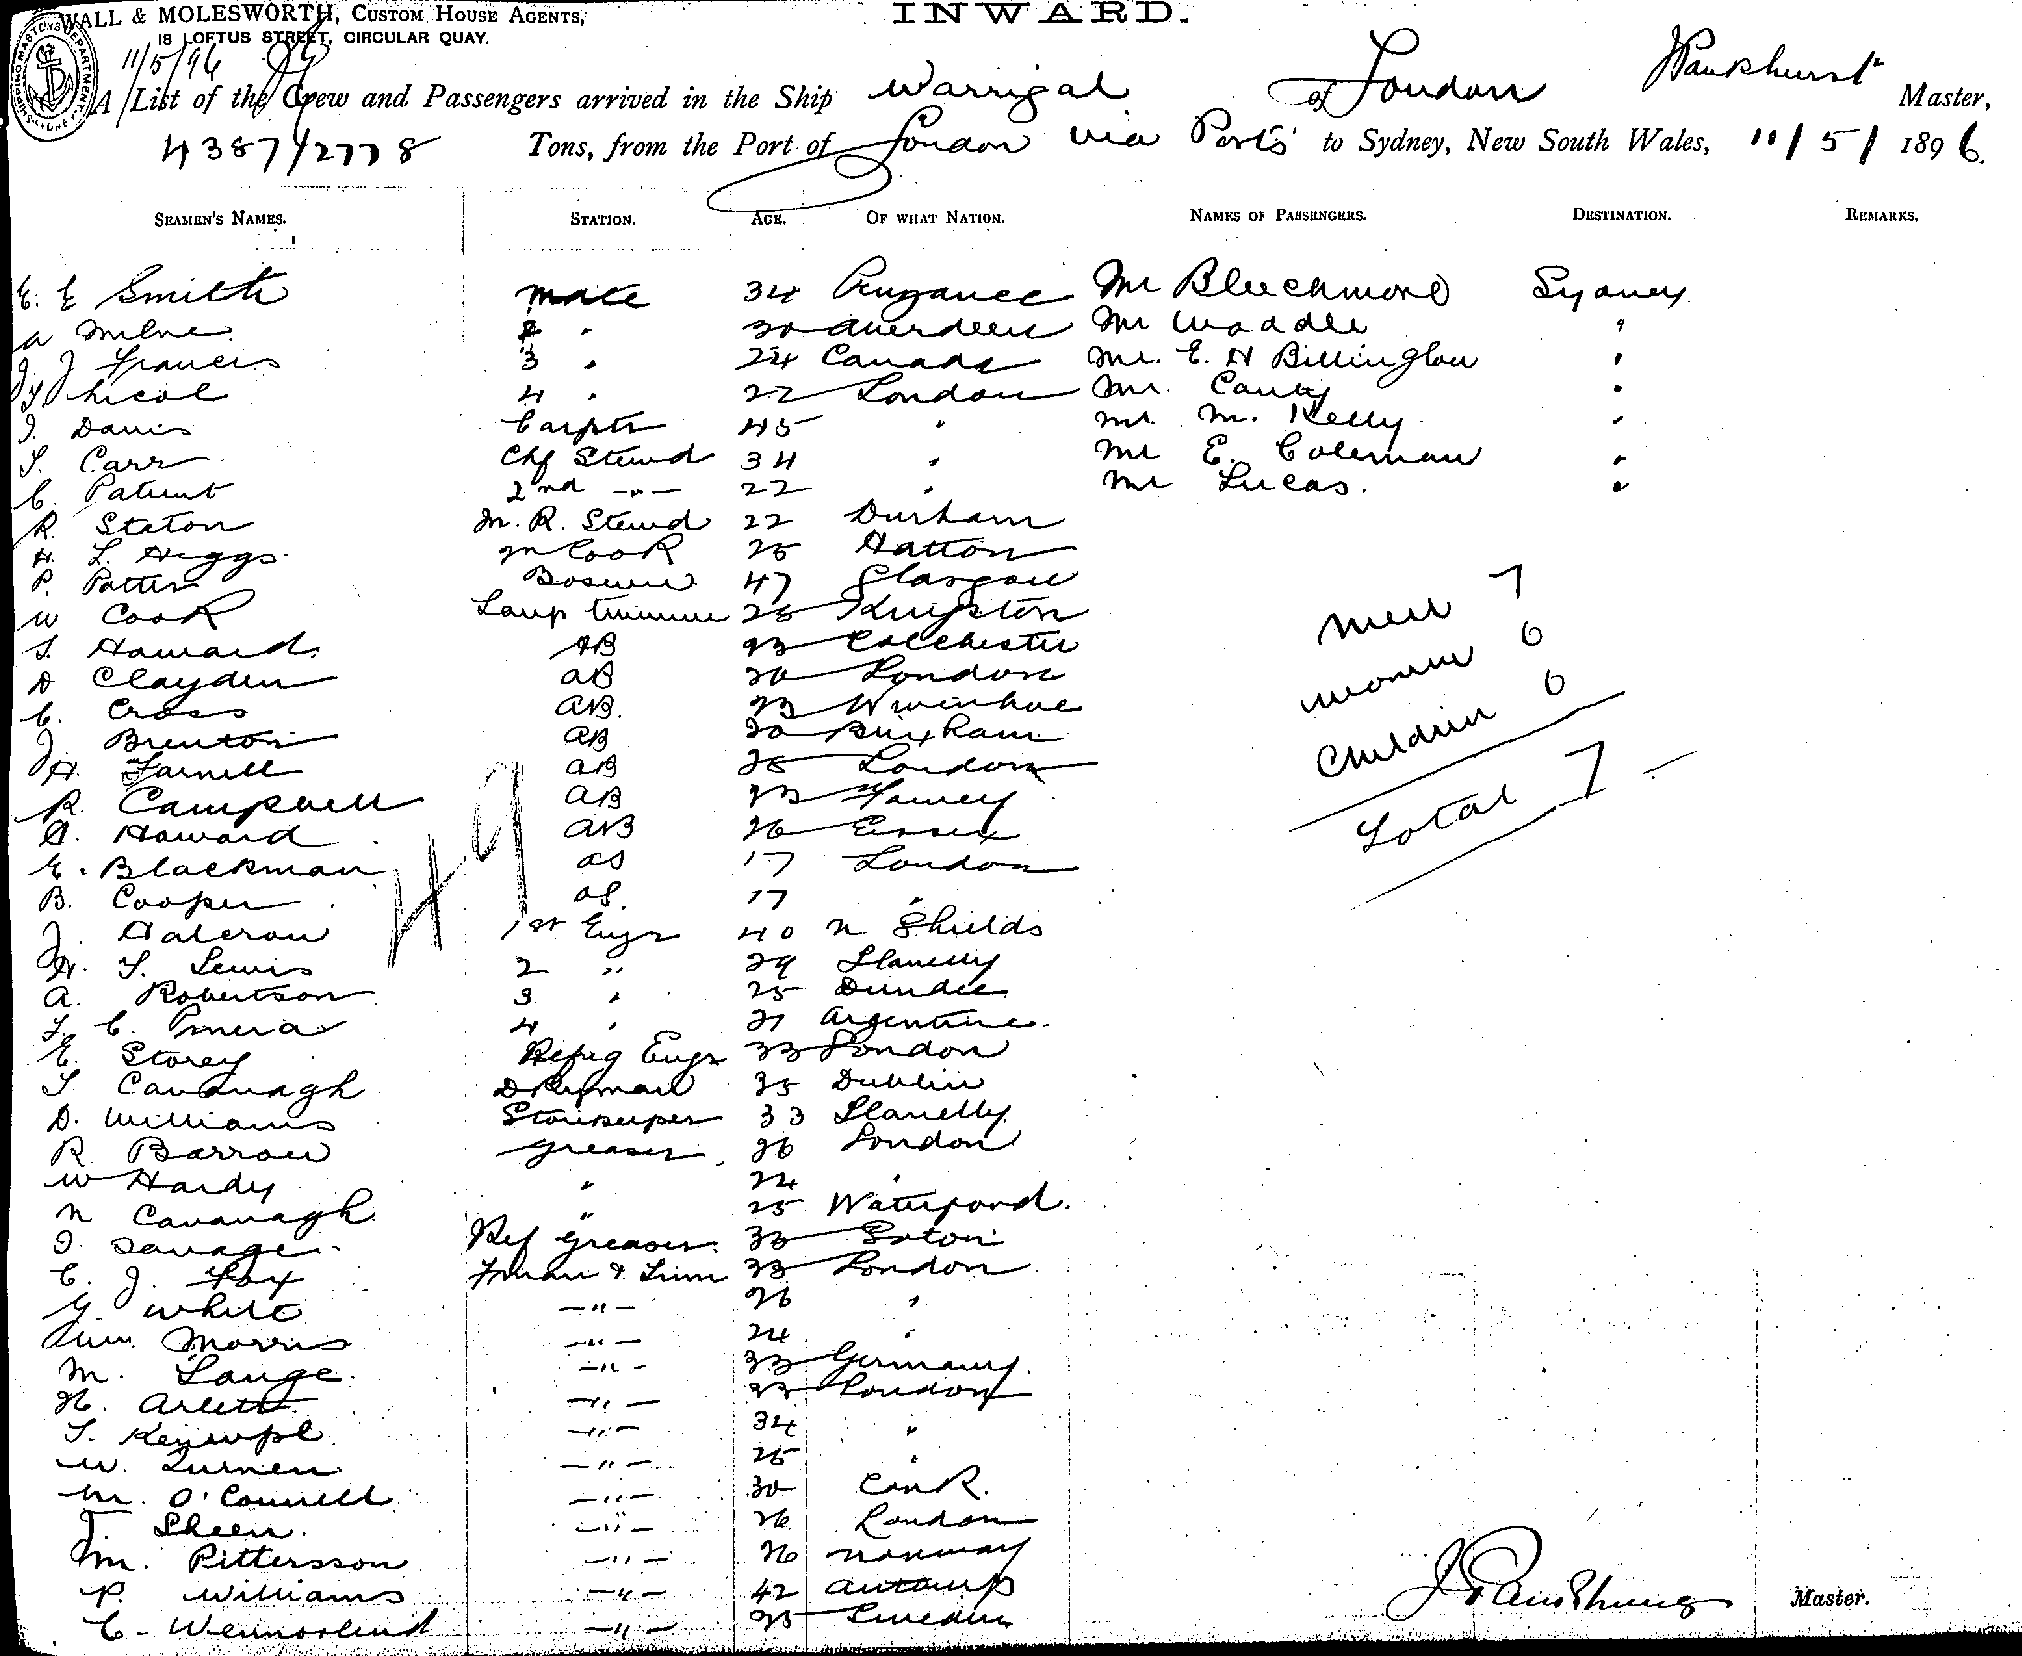 WALL & MOLESWORTH, CUSTOM HOUSE AGENTS,
18 LOFTUS STREET, CIRCULAR QUAY.
INWARD.
11/5/96
A List of the Crew and Passengers arrived in the Ship Warrigal of London J Pankhurst Master,
4387/2778 Tons, from the Port of London via Ports to Sydney, New South Wales, 11/5/1896.
SEAMEN'S NAMES. STATION. AGE. OF WHAT NATION. NAMES OF PASSENGERS. DESTINATION. REMARKS.
E. E Smith mate 34 Penzance Mr Bleechmore Sydney
A Milne 2 " 30 Aberdeen Mr Waddle "
J. J Francis 3 " 24 Canada Mr. E. H Billington "
Nicol 4 " 22 London Mr. Canty "
J. Davis Carptr 45 " Mr. M. Kelly "
S. Carr Chf Stewd 34 " Mr E. Coleman "
C. Patient 2nd -"- 22 " Mr Lucas. "
R. Staton M. R. Stewd 22 Durham
H. L. Higgs Cook 25 Hatton
P. Patten Bosun 47 Glasgow
W Cook Lamp trimmer 25 Kingston
S. Howard AB 23 Colchester
D Clayden AB 20 London
C. Cross AB. 23 Wivenhoe
J. Brenton AB 20 Brixham
H. Farnell AB 25 London
R. Campbell AB 23 Fowey
A. Howard AB 26 Essex
E. Blackman OS 17 London
B. Cooper OS. 17 "
J. Halcrow 1st Engr 40 N Shields
H. T. Lewis 2 " 29 Llanelly
A. Robertson 3 " 25 Dundee
C. 4 " 21 Argentine.
E. Storey Refrig Engr 33 London
S Cavanagh Dkeyman 35 Dublin
D. Williams Storekeeper 33 Llanelly
R Barrow Greaser 26 London
W Hardy " 24 "
N Cavanagh " 25 Waterford.
J. Savage Ref Greaser 33
C. J. Fox Fman & Trim 33 London
G. White -"- 26 "
Wm. Morris -"- 24 "
M. Lange -"- 33 Germany.
H. Arlett -"- London
S. -"- 34 "
W. Turner -"- 25 "
M. O'Connell -"- 30 Cork.
T. Sheen. -"- 26 London
M. Pittersson -"- 26 Norway
P. Williams -"- 42 Antwerp
C. -"- 25 Sweden
49
Men 7
Women 0
Children 0
Total 7
J Pankhurst Master.